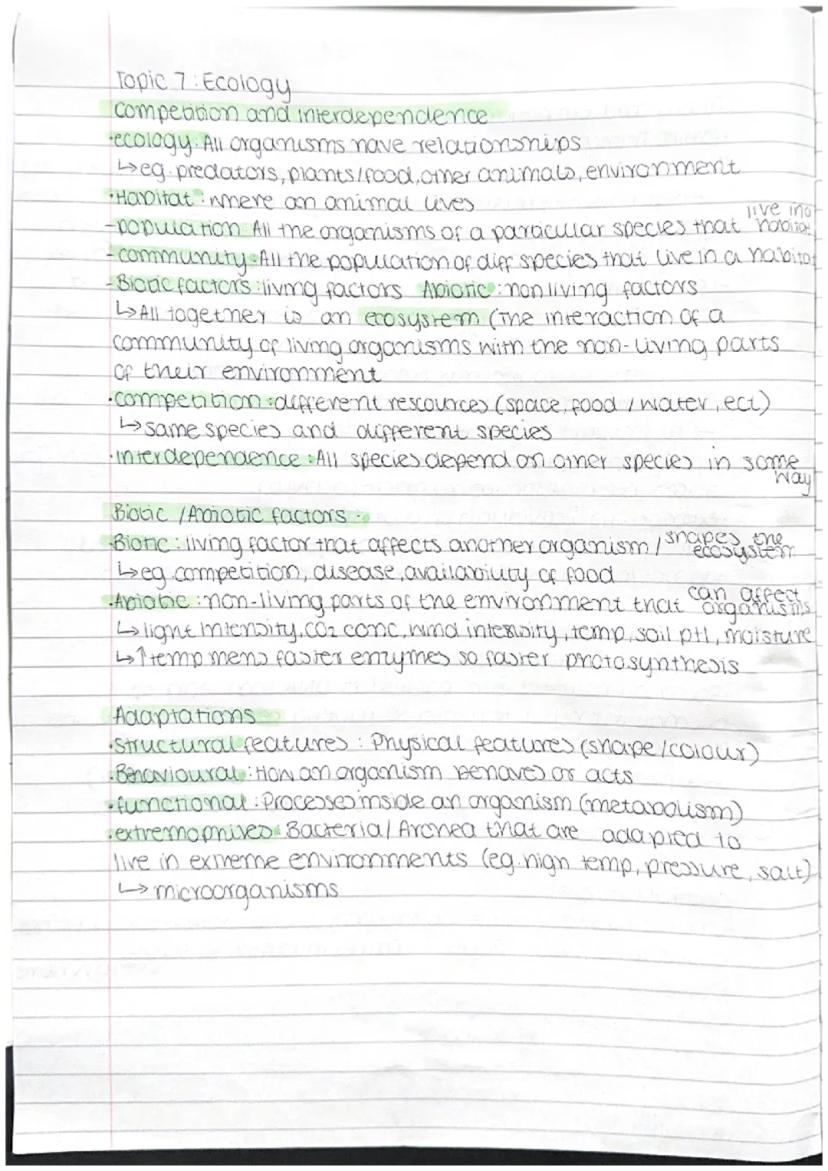 Topic 7: Ecology
competition and interdependence
·ecology: All organisms have relationships
↳eg. predators, plants/food, other animals, environment
·Habitat: where an animal lives
-population: All the organisms of a particular species that live in a habitat
-community: All the population of diff species that live in a habitat
-Biotic factors: living factors Abiotic: nonliving factors
↳All together is an ecosystem (The interaction of a
community of living organisms with the non-living parts
of their environment
·competition: different rescources (space, food / water, ect)
↳same species and different species
·interdependence: All species depend on other species in some way
Biotic / Abiotic factors:
Biotic: living factor that affects another organism / shapes the ecosystem
↳eg. competition, disease, availability of food
·Abiotic: non-living parts of the environment that can affect organisms
↳light intensity, CO2 conc, wind intensity, temp, soil pH, moisture
↳↑temp mens faster enzymes so faster photosynthesis
Adaptations
·structural features: Physical features (shape/colour)
·Behavioural: How an organism behaves or acts
·functional: Processes inside an organism (metabolism)
·extremophiles: Bacteria / Archea that are adapted to
live in extreme environments (eg. high temp, pressure, salt)
↳ microorganisms